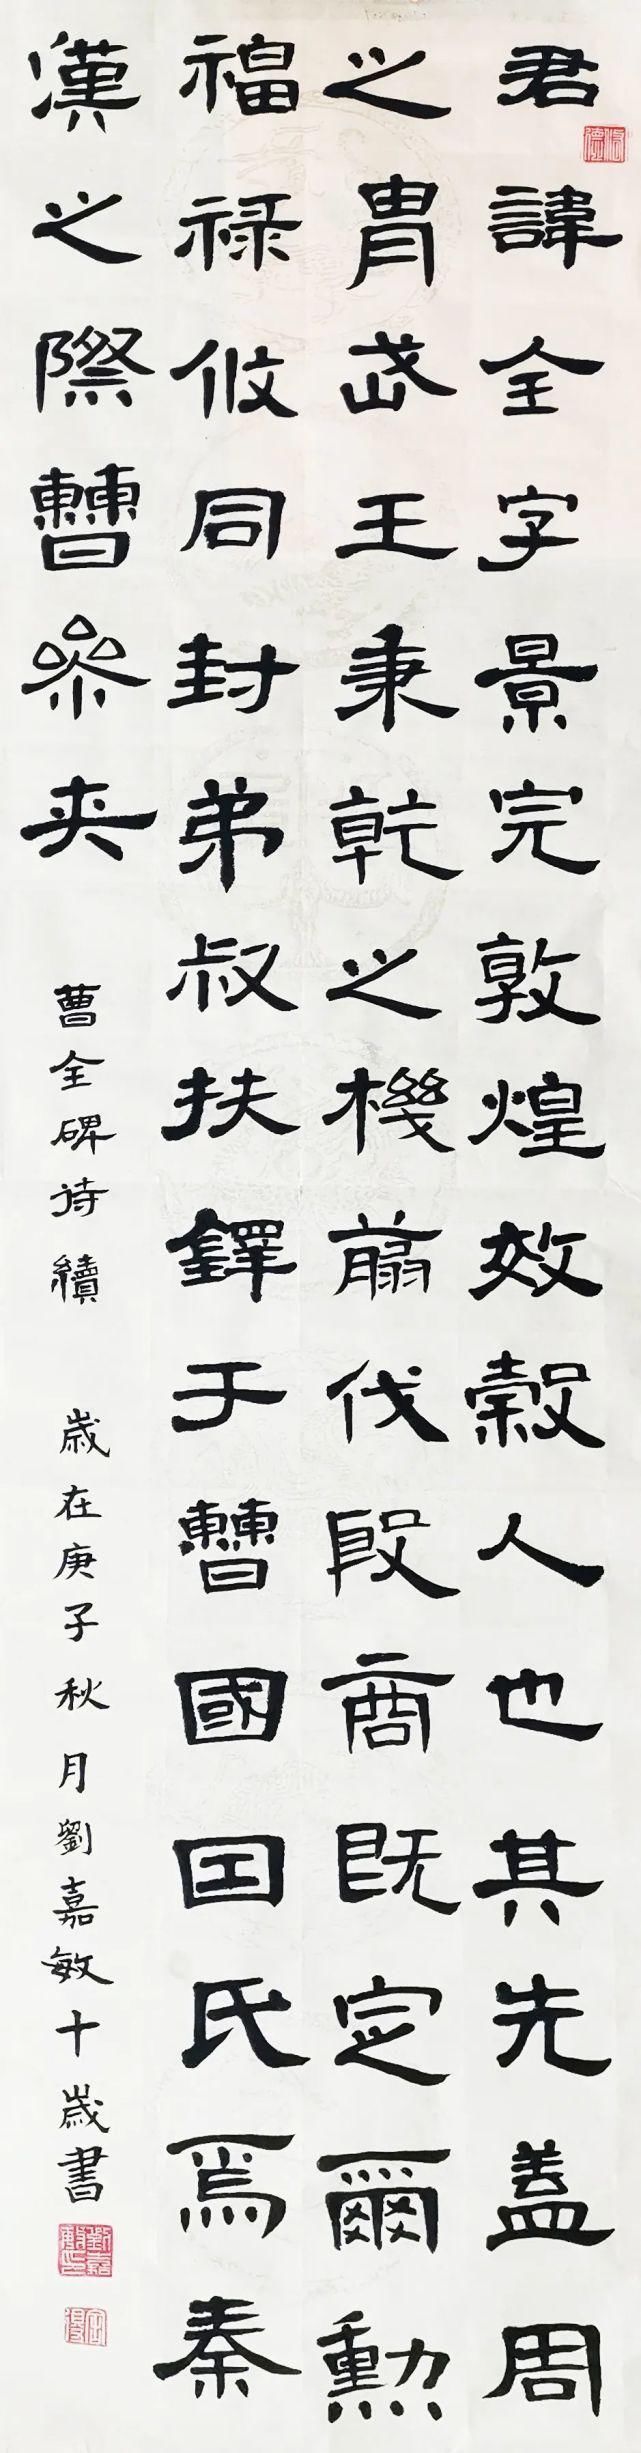 君諱全字景完敦煌效穀人也其先盖周
之胄武王秉乾之機翦伐殷商既定爾勳
福禄攸同封弟叔扶鐸于曹國因氏焉秦
漢之際曹參夾
曹全碑待續 歲在庚子秋月劉嘉敏十歲書